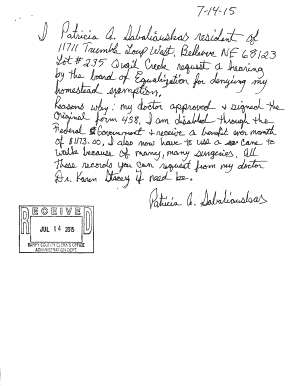 7-14-15
I Patricia A. Sabaliauskas resident of
11711 Tremble Loup West, Bellevue NE 68123
Lot # 235 Quail Creek request a hearing
by the board of Equalization for denying my
homestead exemption.
Reasons why: my doctor approved + signed the
Original form 458. I am disabled through the
Federal Government + receive a benefit per month
of $1173.00. I also now have to use a cane to
walk because of many, many surgeries. All
these records you can request from my doctor
Dr. Karen Stacey if need be.
Patricia A. Sabaliauskas
RECEIVED
JUL 14 2015
SARPY COUNTY CLERK'S OFFICE
ADMINISTRATION DEPT.